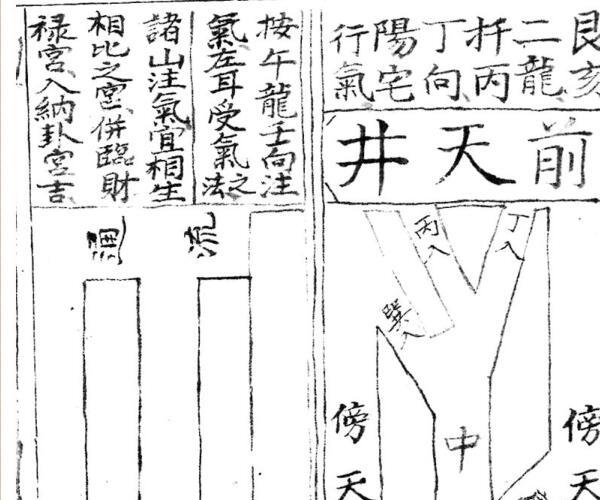 艮亥
二龍
扦丙
丁向
陽宅
行氣
前天井
丁入
丙入
巽入
傍天
中
傍天
按午龍壬向注
氣左耳受氣之法
諸山注氣宜相生
相比之宮併臨財
禄宮入納卦宮吉